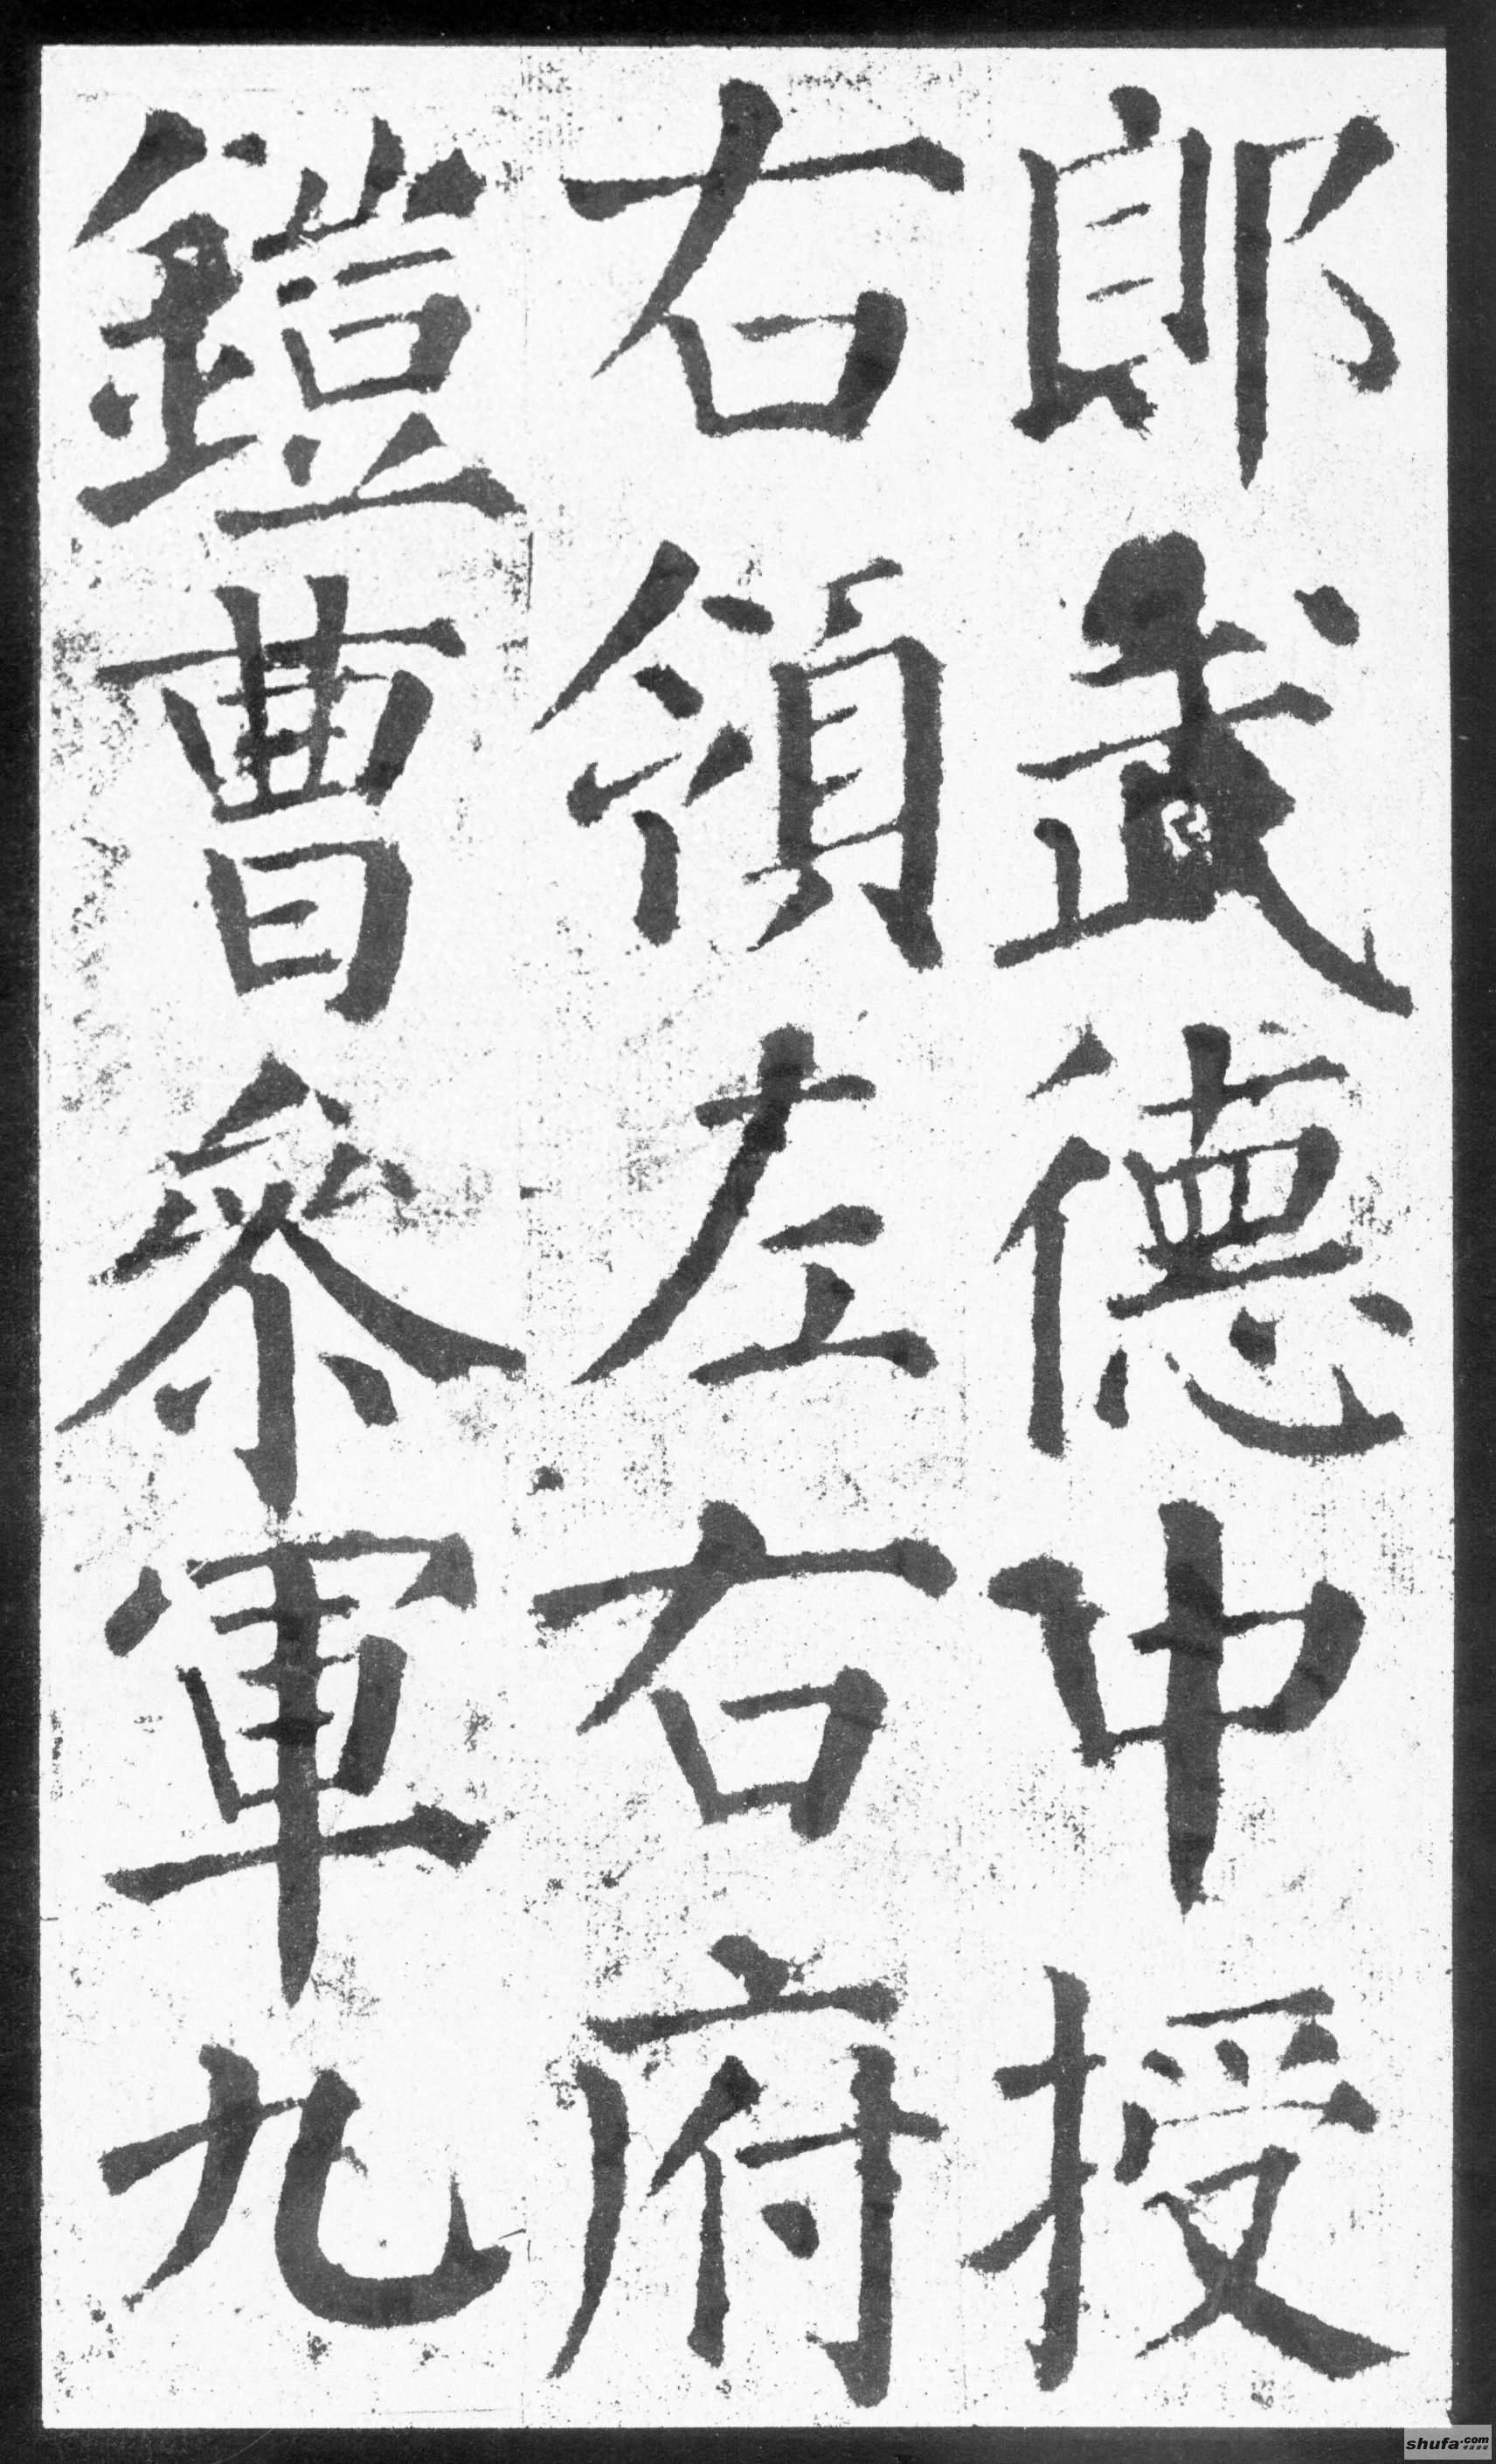 郎武德中授
右領左右府
鎧曹參軍九
shufa.com